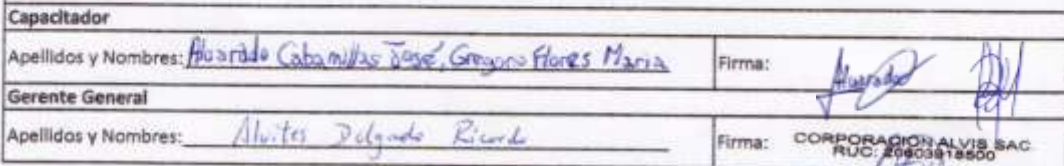 Capacitador
Apellidos y Nombres: Alvarado Cabanillas José, Gregorio Flores Maria Firma: Alvarado
Gerente General
Apellidos y Nombres: Alvites Delgado Ricardo Firma: CORPORACION ALVIS SAC
RUC: